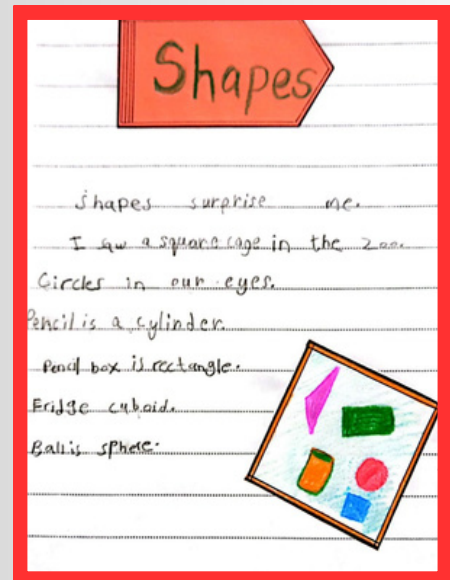 Shapes
Shapes surprise me.
I saw a square cage in the zoo.
Circles in our eyes.
Pencil is a cylinder.
Pencil box is rectangle.
Fridge cuboid.
Ball is sphere.